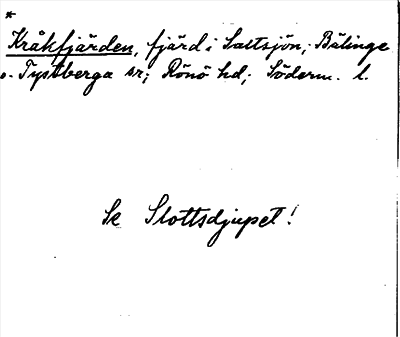 *
Kråkfjärden, fjärd i Saltsjön, Bälinge
o. Tystberga sr; Rönö hd; Söderm. l.
Se Slottsdjupet!